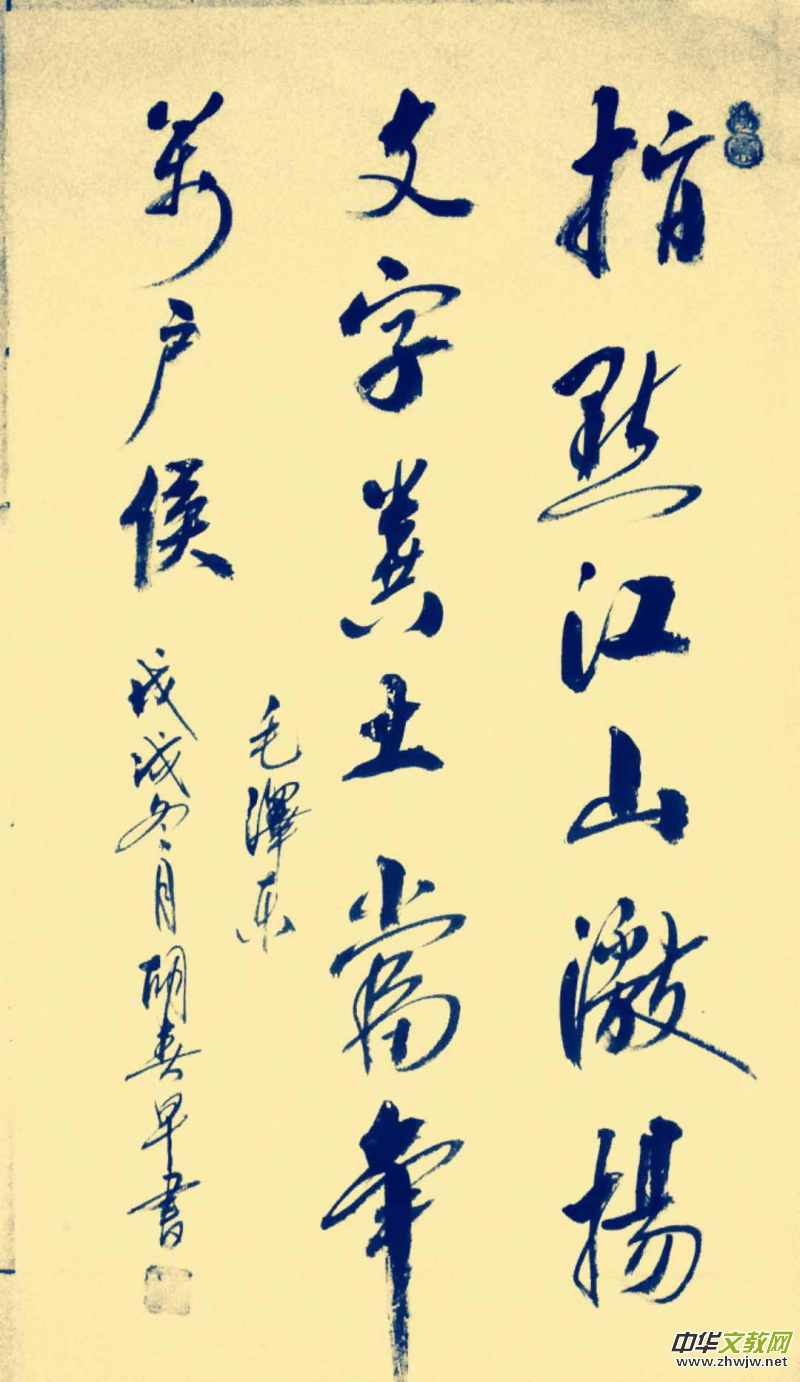 指點江山激揚
文字糞土當年
萬户侯
毛澤東
戊戌冬月胡春早書
中华文教网
www.zhwjw.net